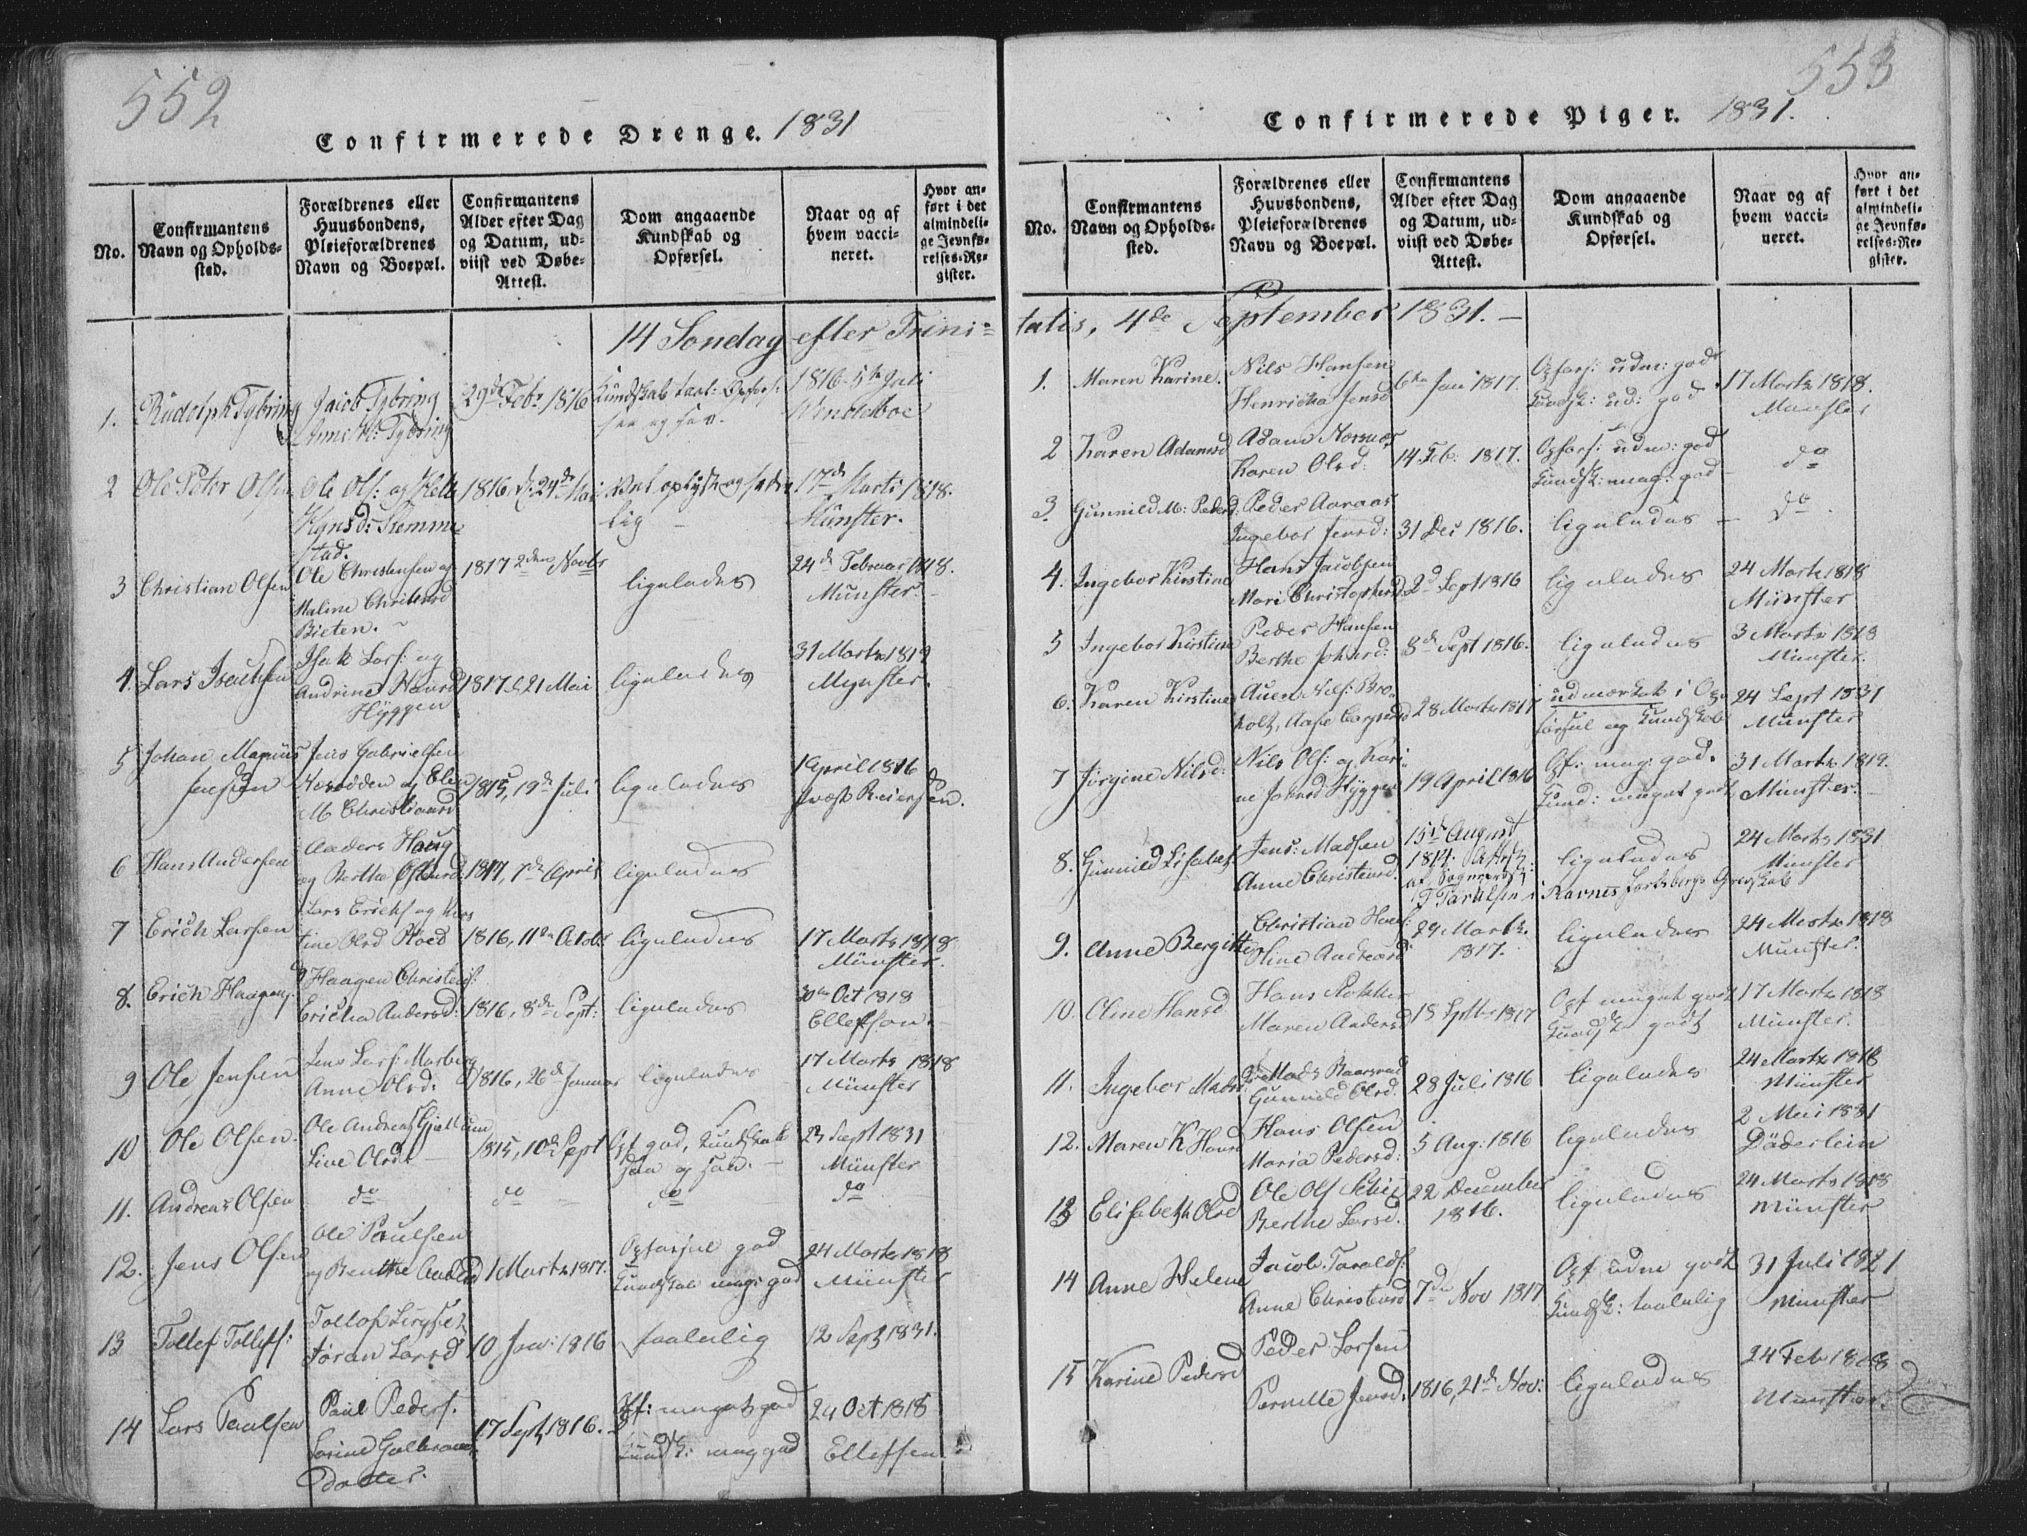 552
Confirmerede Drenge. 1831
No.
Confirmantens Navn og Opholds-sted.
Forældrenes eller Huusbondens, Pleieforældrenes Navn og Boepæl.
Confirmantens Alder efter Dag og Datum, ud-viist ved Døbe-Attest.
Dom angaaende Kundskab og Opførsel.
Naar og af hvem vacci-neret.
Hvor an-ført i det almindeli-ge Jevnfø-relses-Re-gister.
14 Sondag efter Trini=
1. Rudolph Tybring
Jacob Tybring
Anne M: Tybring
29de Febr 1816
1816 5te Juli
2 Ole Peter Olsen
Ole Ols: og
1816, d: 24de Mai
17de Marts 1818.
Münster.
3 Christian Olsen
Ole Christensen og
Maline
1817 2den Novbr
ligeledes
24de Februar 1818.
Münster.
4. Lars Isaksen
Isak Lars: og
Andrine Hansd
Hyggen
1817 d. 21 Mai
ligeledes
31 Marts 1819
Mynster.
5 Johan Magnus
Jensen
Jens Gabrielsen
og Elen
M Christiansd
1815, 19de Juli
ligeledes
1 April 1816
Præst Reiersen.
6 Hans Andersen
Anders Haug
og Berthe
1817, 7de April
ligeledes
7 Erich Larsen
Lars Erichs og Kirs
tine Olsd
1816, 11te Octobr
ligeledes
17 Marts 1818
Münster.
8. Erich Haagens:
Haagen Christens:
Ericha Andersd:
1816, 8de Sept:
ligeledes
30te Oct 1818
Ellefsen.
9 Ole Jensen
Jens Lars: Morberg
Anne Olsd:
1816, 26de Januar
ligeledes
17 Marts 1818
Münster
10 Ole Olsen.
Ole Andreas
Live Olsd:
1815, 10de Sept
Opf god, Kundskab
saa og saa.
23 Sept 1831
Münster
11. Andreas Olsen
do
do
do
do
12. Jens Olsen
Ole Paulsen
og Benthe
1 Marts 1817.
Opførsel god
Kundskab meg: god
24 Marts 1818
Münster
13 Tollef Tollefs:
Tollof
Jøran Larsd
10 Jan: 1816
taalelig
12 Sept 1831.
14 Lars Paulsen
Paul Peders.
Karine Gulbrands
Datter.
17 Sept 1816.
Opf: meget god
Kundsk: meg god
24 Oct 1818
Ellefsen
553
Confirmerede Piger. 1831.
No.
Confirmantens Navn og Opholds-sted.
Forældrenes eller Huusbondens, Pleieforældrenes Navn og Boepæl.
Confirmantens Alder efter Dag og Datum, ud-viist ved Døbe-Attest.
Dom angaaende Kundskab og Opførsel.
Naar og af hvem vacci-neret.
Hvor an-ført i det almindeli-ge Jevnfø-relses-Re-gister.
tatis, 4de September 1831. –
1. Maren Karine.
Nils Hansen
Henricha Jensd
6te Jan 1817.
Opførs: udm: god
Kundsk: ud: god
17 Marts 1818.
Münster
2 Karen Adamsd
Adam
Karen Olsd:
14 Feb: 1817.
Opførs: udm: god
Kundsk: meg: god
do
3. Gunnild M: Pedersd:
Peder Aaraas
Ingebor Jensd:
31 Des 1816.
ligeledes
do
4. Ingebor Kirstine
Hans Jacobsen
Mari Christophersd
2d Sept 1816
ligeledes
24 Marts 1818
Münster
5 Ingebor Kirstine
Peder Hansen
Berthe Johnsd:
8de Sept 1816.
ligeledes
3 Marts 1818
Münster.
6. Karen Kirstine
Auen Nils: Bro
holt, Aase
28 Marts 1817
udmærket i Op
førsel og Kundskab
24 Sept 1831
Münster
7 Jørgine Nilsd:
Nils Ols: og Kari
ne Johnsd Hyggen
19 April 1816
Opf: meg: god.
Kund: meget godt
31 Marts 1819.
Münster.
8. Gunnild Lisabet
Jens: Madsen
Anne Christensd.
15de August
1814. Attest
af Sognepræst
i Ravnes Jarlsbergs Grevskab
ligeledes
24 Marts 1831
Münster
9. Anne Bergitte
Christian Hans:
Oline Andersd
29 Marts.
1817.
ligeledes
24 Marts 1818
Münster.
10. Oline Hansd
Hans
Maren Andersd
18 Septbr 1817
Opf meget godt
Kundsk godt
17 Marts 1818
Münster.
11. Ingebor Madsd
Mads
Gunnild Olsd.
28 Juli 1816
ligeledes
24 Marts 1818
Münster
12. Maren K Hansd
Hans Olsen
Maria Pedersd:
5 Aug: 1816
ligeledes
2 Mai 1831
Däderlein
13 Elisabeth Olsd
Ole Ols
Berthe Larsd.
22 December
1816.
ligeledes
24 Marts 1818
Münster
14 Anne Helene
Jacob Taralds:
Anne Christensd
7de Nov 1817
Opf udm godt
Kundsk: taalelig
31 Juli 1821
Münster
15 Karine Pedersd
Peder Larsen
Pernille Jensd.
1816, 21de Nov:
ligeledes
24 Feb 1818
Münster.